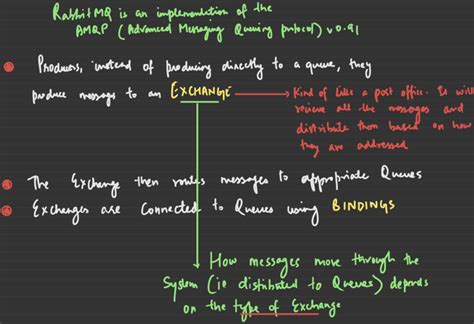 RabbitMQ is an implementation of the
AMQP (Advanced Messaging Queuing protocol) v0.91
Producers, instead of producing directly to a queue, they
produce messages to an EXCHANGE
Kind of like a post office. It will
recieve all the messages and
distribute them based on how
they are addressed
The Exchange then routes messages to appropriate Queues
Exchanges are connected to Queues using BINDINGS
How messages move through the
System (ie distributed to Queues) depends
on the type of Exchange